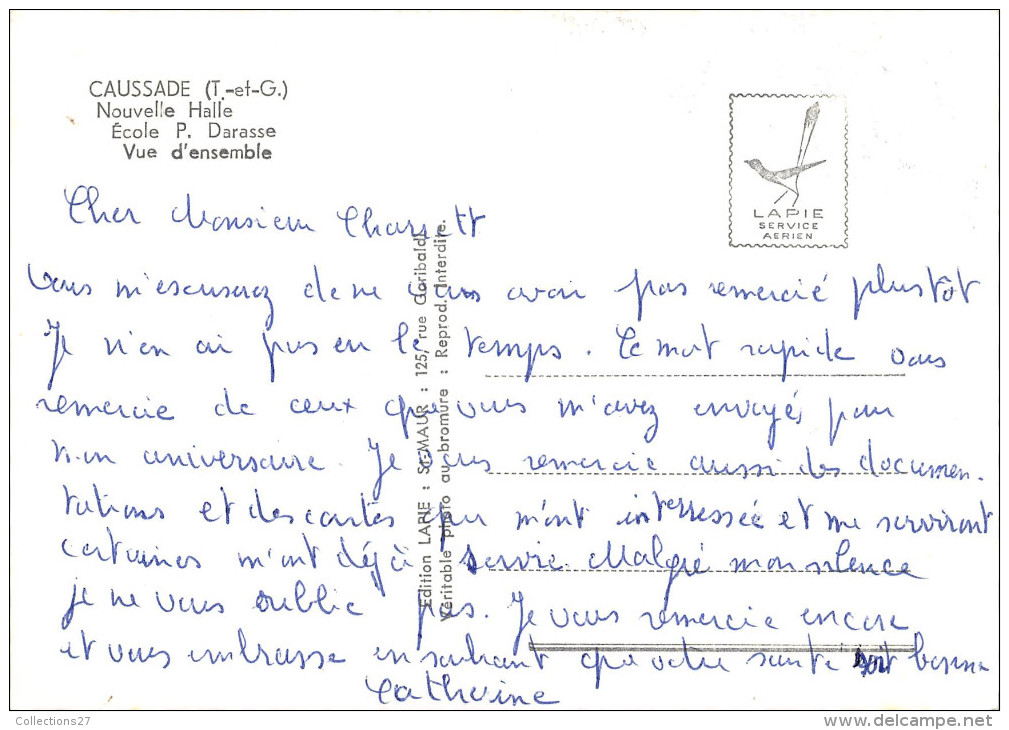 CAUSSADE (T.-et-G.)
Nouvelle Halle
École P. Darasse
Vue d'ensemble
LAPIE
SERVICE
AERIEN
Cher Monsieur
Vous m'escuserez de ne vous avoir pas remercié plustôt
Je n'en ai pas eu le temps. Ce mot rapide vous
remercie de ceux que vous m'avez envoyés pour
mon aniversaire. Je vous remercie aussi des documen-
tations et des cartes qui m'ont interressée et me serviront
certaines m'ont déjà servie. Malgré mon silence
je ne vous oublie pas. Je vous remercie encore
et vous embrasse en souhaitant que votre santé soit bonne
Catherine
Edition LAPIE : St-MAUR : 125, rue Garibaldi
Véritable photo au bromure : Reprod. Interdite.
Collections27
delcampe.net